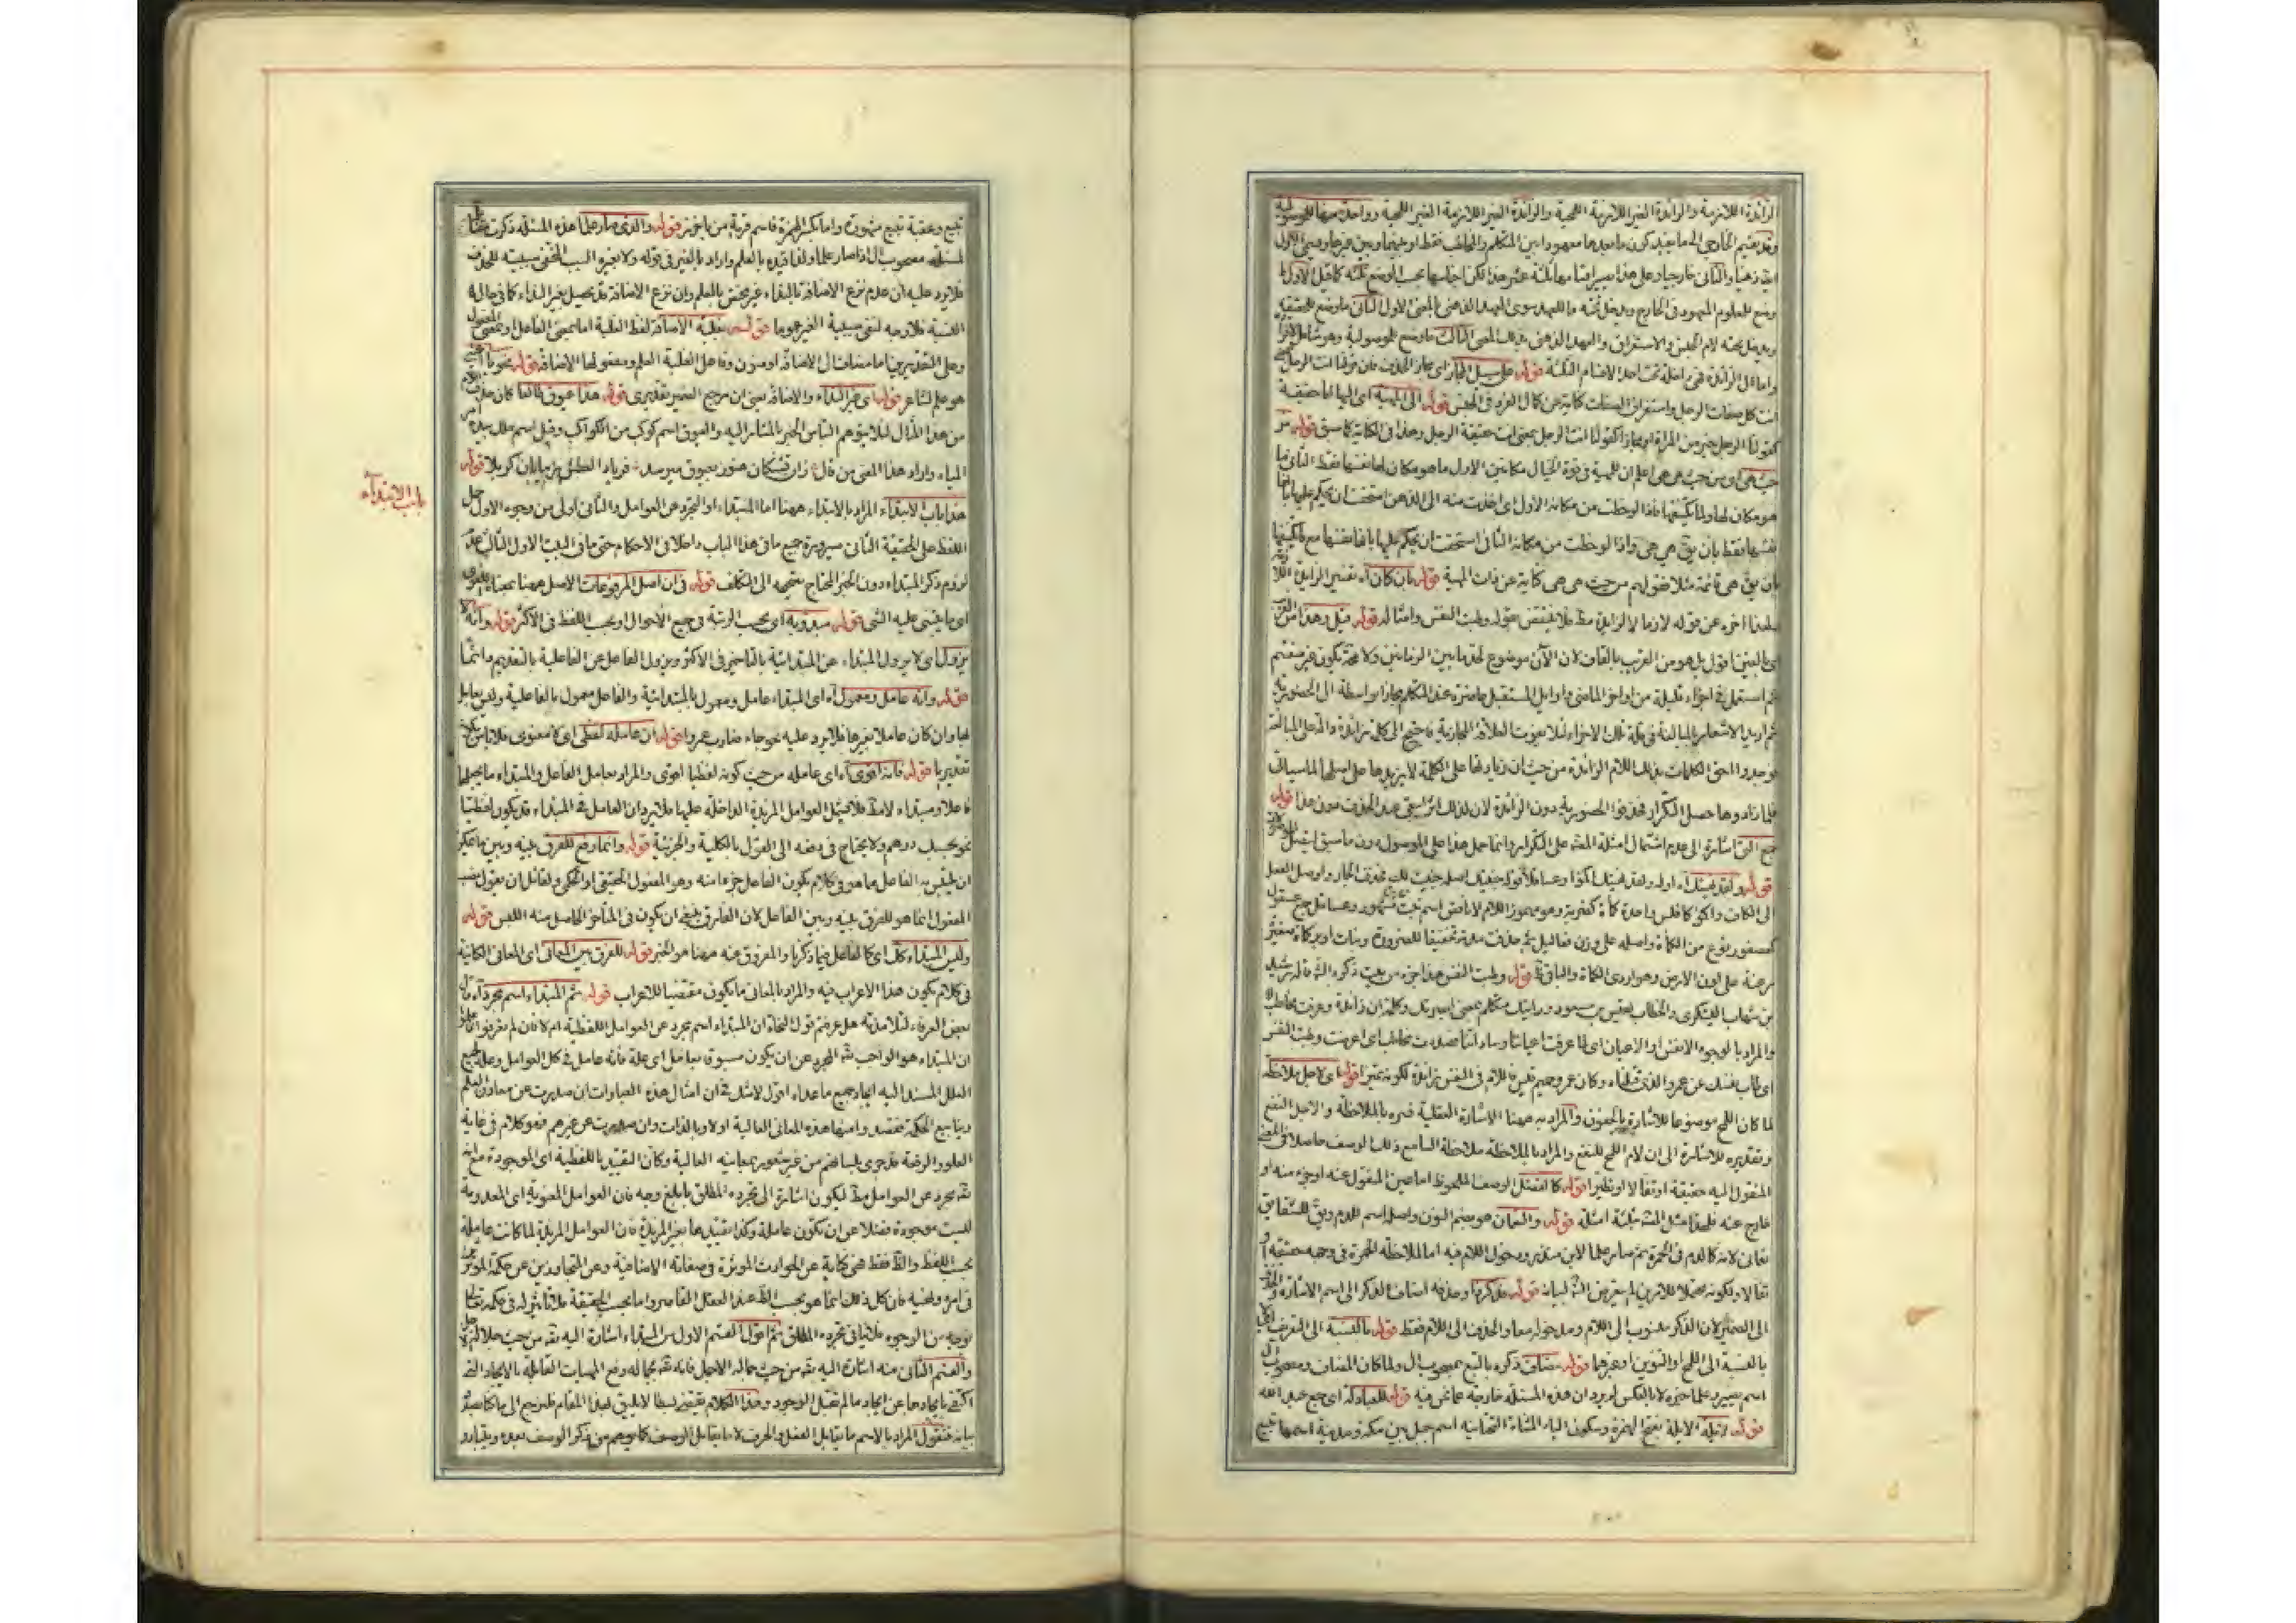 الزائدة اللازمة والزائدة الغير اللازمة اللمحية والزائدة الغير اللازمة الغير اللمحية وواحدة منها للموصولية
وقد يقسم الخارجي الى ما يفيد كون ما بعدها معهودا بين المتكلم والمخاطب فقط او بينهما وبين غيرهما ويسمى الاول
وضع للمعلوم المعهود في الخارج ويدخل تحته ما للعهد سوى العهد الذهني بالمعنى الاول الثاني ما وضع للحقيقة
ويدخل تحته لام الجنس والاستغراق والعهد الذهني بذلك المعنى الثالث ما وضع للموصولية وهو شامل
واما ال الزائدة فهي داخلة تحت احد الاقسام الثلثة قوله على سبيل المجاز اى مجاز الحذف فان قولنا انت الرجل
انت كل صفات الرجل واستغراق الصفات كناية عن كمال الفرد في الجنس قوله الى المهية اى اليها اما حقيقة
كقولنا الرجل خير من المراة او مجازا كقولنا انت الرجل بمعنى انت حقيقة الرجل وهذا في الكناية كما سبق قوله من
حيث هي اى من حيث هي هي اعلم ان للمهية في قوة الخيال مكانين الاول ما هو مكان لها نفسها فقط الثاني ما
هو مكان لها ولما يكتنفها فاذا لوحظت من مكانه الاول اى اخذت منه الى الذهن استحقت ان يحكم عليها بانها
نفسها فقط بان يق هي هي واذا لوحظت من مكانه الثاني استحقت ان يحكم عليها بانها نفسها مع ما يكتنفها
بان يق هي قائمة مثلا فقولهم من حيث هي هي كناية عن ذات المهية قوله بان كان آه تفسير الزائدة
بهذا اخره عن قوله لازما لا لزايدة مط فلا ينتقض بقوله وطبت النفس وامثاله قوله قيل وهذا من
اى بالغين اقول بل هو من القريب بالقاف لان الآن موضوع لحد ما بين الزمانين ولا محة يكون غير منقسم
ثم استعمل في اجزاء قليلة من اواخر الماضي واوايل المستقبل حاضرة عند المتكلم مجازا بواسطة ال الحضورية
فلما زادوها حصل التكرار فحذفوا الحضورية دون الزائدة
جمع التي اشارة الى عدم اشتمال امثلة المتن على التكرار وانما حمل هذا على الموصول دون ما سبق
قوله ولقد جنيتك آه اوله ولقد جنيتك اكمؤا وعساقلا قوله جنيتك اصله جنيت لك فحذف الجار واوصل الفعل
الى الكاف واكمؤ كافلس واحدة كمأة كضربة وهو مهموز اللام لا نافص اسم نبت مشهور وعساقل جمع عسقول
كعصفور نوع من الكمأة واصله على وزن فعاليل ثم حذفت مدته تخفيفا للضرورة وبنات اوبر كمأة صغيرة
مزغبة على لون الارض وهو اردى الكمأة والباقي ظ قوله وطبت النفس هذا جزء من بيت ذكره الش قاله رشيد
بن شهاب اليشكري والخطاب لقيس بن مسعود ورايتك متكلم بمعنى ابصرتك وكلمة ان زائدة وعرفت مخاطب
والمراد بالوجوه الانفس او الاعيان اى لما عرفت اعياننا وساداتنا صددت مخاطب اى اعرضت وطبت النفس
اى طاب نفسك عن عمرو الذي قتلناه وكان عمرو حميم قيس فاللام في النفس زائدة لكونه تميزا قوله اى لاجل ملاحظة
لما كان اللمح موضوعا للاشارة بالجفون والمراد به ههنا الاشارة العقلية فسره بالملاحظة والاجل النفع
وتقديره للاشارة الى ان لام اللمح للنفع والمراد بالملاحظة ملاحظة السامع ذلك الوصف حاصلا في
المنقول اليه حقيقة او تفالا او نظيرا قوله كالفضل الوصف الملحوظ اما عين المنقول عنه او جزء منه او
خارج عنه فلهذا مثل المتن بثلثة امثلة قوله والنعمان هو بضم النون واصل اسم للدم ويق للشقايق
نعمان لانه كالدم في الحمرة ثم صار علما لابن منذر ودخول اللام فيه اما لملاحظة الحمرة في وجهه حقيقة او
تفالا ولكونه محتملا للامرين لم يتعرض الش لبيانه قوله فذكر ذا وحذفه اضاف الذكر الى اسم الاشارة
الى الضمير لان الذكر منسوب الى اللام ومدخوله معا والحذف الى اللام فقط قوله بالنسبة الى التعريف
بالنسبة الى اللمح او التنوين او غيرها قوله مضاف ذكره بالتبع بمصحوب ال ولما كان المضاف ومصحوب ال
اسم يصير علما خبره لا بالعكس لم يرد ان هذه المسئلة خارجة عما نحن فيه قوله للعبادلة اى جمع عبد الله
قوله لايلة الايلة بفتح الهمزة وسكون الياء المثناة التحتانية اسم جبل بين مكة ومدينة اسمها ينبع
ينبع وعقبة ينبع مشهورة واما بكسر الهمزة فاسم قرية من قوله والذي صار علما هذه المسئلة ذكرت
لمسئلة مصحوب ال اذا صار علما ولها قيده بالعلم واراد بالغير في قوله ولا بغيره السبب الحقيقي سببيته للحذف
فلا يرد عليه ان عدم نزع الاضافة بالنداء غير مختص بالعلم وان نزع الاضافة قد يحصل بغير النداء كما في حالة
النسبة فلا وجه لنفي سببية الغير عموما قوله بغلبة الاضافة لفظ الغلبة اما بمعنى الفاعل او بمعنى المفعول
وعلى التقديرين اما مضاف الى الاضافة او منون وفاعل الغلبة العلم ومفعولها الاضافة قوله نحو يا
هو علم لشاعر قوله اى غير النداء والاضافة يعني ان مرجع الضمير تقديري قوله هذا عيوق طالعا كان حذف
من هذا المثال لئلا يتوهم التباس الخبر بالمشار اليه والعيوق اسم كوكب من الكواكب وقيل اسم ملك بيده امر
المياه واراد هذا المعنى من قال زان تشنگان هنوز بعيوق ميرسد فرياد العطش ز بيابان كربلا قوله
باب الابتداء
هذا باب الابتداء المراد بالابتداء ههنا اما المبتداء او التجرد عن العوامل والثاني اولى من وجوه الاول حمل
اللفظ على الحقيقة الثاني صيرورة جميع ما في هذا الباب داخلا في الاحكام حتى ما في البيت الاول الثالث عدم
لزوم ذكر المبتداء دون الخبر المحتاج توجيهه الى التكلف قوله في ان اصل المرفوعات الاصل ههنا بمعناه اللغوي
اى ما يبتنى عليه الشئ قوله مبدؤ به اى بحسب الرتبة في جميع الاحوال او بحسب اللفظ في الاكثر قوله وانه لا
يزول اى لا يزول المبتداء عن المبتدائية بالتاخير في الاكثر ويزول الفاعل عن الفاعلية بالتقديم دائما
قوله وانه عامل ومعمول آه اى المبتداء عامل ومعمول بالمبتدائية والفاعل معمول بالفاعلية وليس بعامل
بها وان كان عاملا بغيرها فلا يرد عليه نحو جاء ضارب عمروا قوله ان عامله لفظي اى لا معنوى فلا باس بكونه
تقديريا قوله فانه اقوى آه اى عامله من حيث كونه لفظيا اقوى والمراد بعامل الفاعل والمبتداء ما يجعلها
فاعلا ومبتداء لا مط فلا يشمل العوامل المزيدة الداخلة عليها فلا يرد ان العامل في المبتداء قد يكون لفظيا
نحو بحسبك درهم ولا يحتاج في دفعه الى القول بالكلية والجزئية قوله وانما رفع للفرق بينه وبين ما يمكن
ان يلتبس به الفاعل مما هو في كلام يكون الفاعل جزءا منه وهو المفعول الحقيقي او الحكمي ولقائل ان يقول نصب
المفعول انما هو للفرق بينه وبين الفاعل لان الفارق ينبغي ان يكون في المتاخر الحاصل منه اللبس قوله
وليس المبتداء كك اى كالفاعل فيما ذكرنا والمفروق عنه ههنا هو الخبر قوله للفرق بين المعاني اى المعاني الكائنة
في كلام يكون هذا الاعراب فيه والمراد بالمعاني ما يكون مقتضيا للاعراب قوله ثم المبتداء اسم مجرد آه قال
بعض العرفاء لتلامذته هل عرفتم قول النحاة ان المبتداء اسم مجرد عن العوامل اللفظية ام لا فان لم تعرفوا فاعلموا
ان المبتداء هو الواجب تع المجرد عن ان يكون مسبوقا بعامل اى علة فانه عامل في كل العوامل وعلة لجميع
العلل المسند اليه ايجاد جميع ما عداه اقول لا شك في ان امثال هذه العبارات ان صدرت عن معادن العلم
وينابيع الحكمة فقصدوا منها هذه المعاني العالية اولا وبالذات وان صدرت عن غيرهم فهو كلام في غاية
العلو والرفعة قد جرى بلسانهم من غير شعور بمعانيه العالية وكان التقييد باللفظية اى الموجودة مع انه
تع مجرد عن العوامل مط ليكون اشارة الى تجرده المطلق بابلغ وجه فان العوامل المعنوية اى المعدومة
ليست موجودة فضلا عن ان يكون عاملة وكذا تقييدها بغير المزيدة فان العوامل المزيدة لما كانت عاملة
بحسب اللفظ والظ فقط هي كناية عن الحوادث الموثرة في صفاته الاضافية وعن المتجاوزين عن حكمه
في امره ونهيه فان كل ذلك انما هو بحسب الظ عند العقل القاصر واما بحسب الحقيقة فلا تاثير له في حكمه تعالى
بوجه من الوجوه فلا ينافي تجرده المطلق ثم اقول القسم الاول من المبتداء اشارة اليه تع من حيث جلاله
والقسم الثاني منه اشارة اليه تع من حيث جماله الاجل فانه تع بجماله رفع المهيات القابلة بالايجاد الذي
اكتفى بايجادها عن ايجاد ما لم تقبل الوجود وهذا الكلام يقتضي بسطا لا يليق بهذا المقام فلنرجع الى ما كنا بصدد
بيانه فنقول المراد بالاسم ما يقابل الفعل والحرف لا ما يقابل الوصف كما يوهم من ذكر الوصف بعده ويتبادر